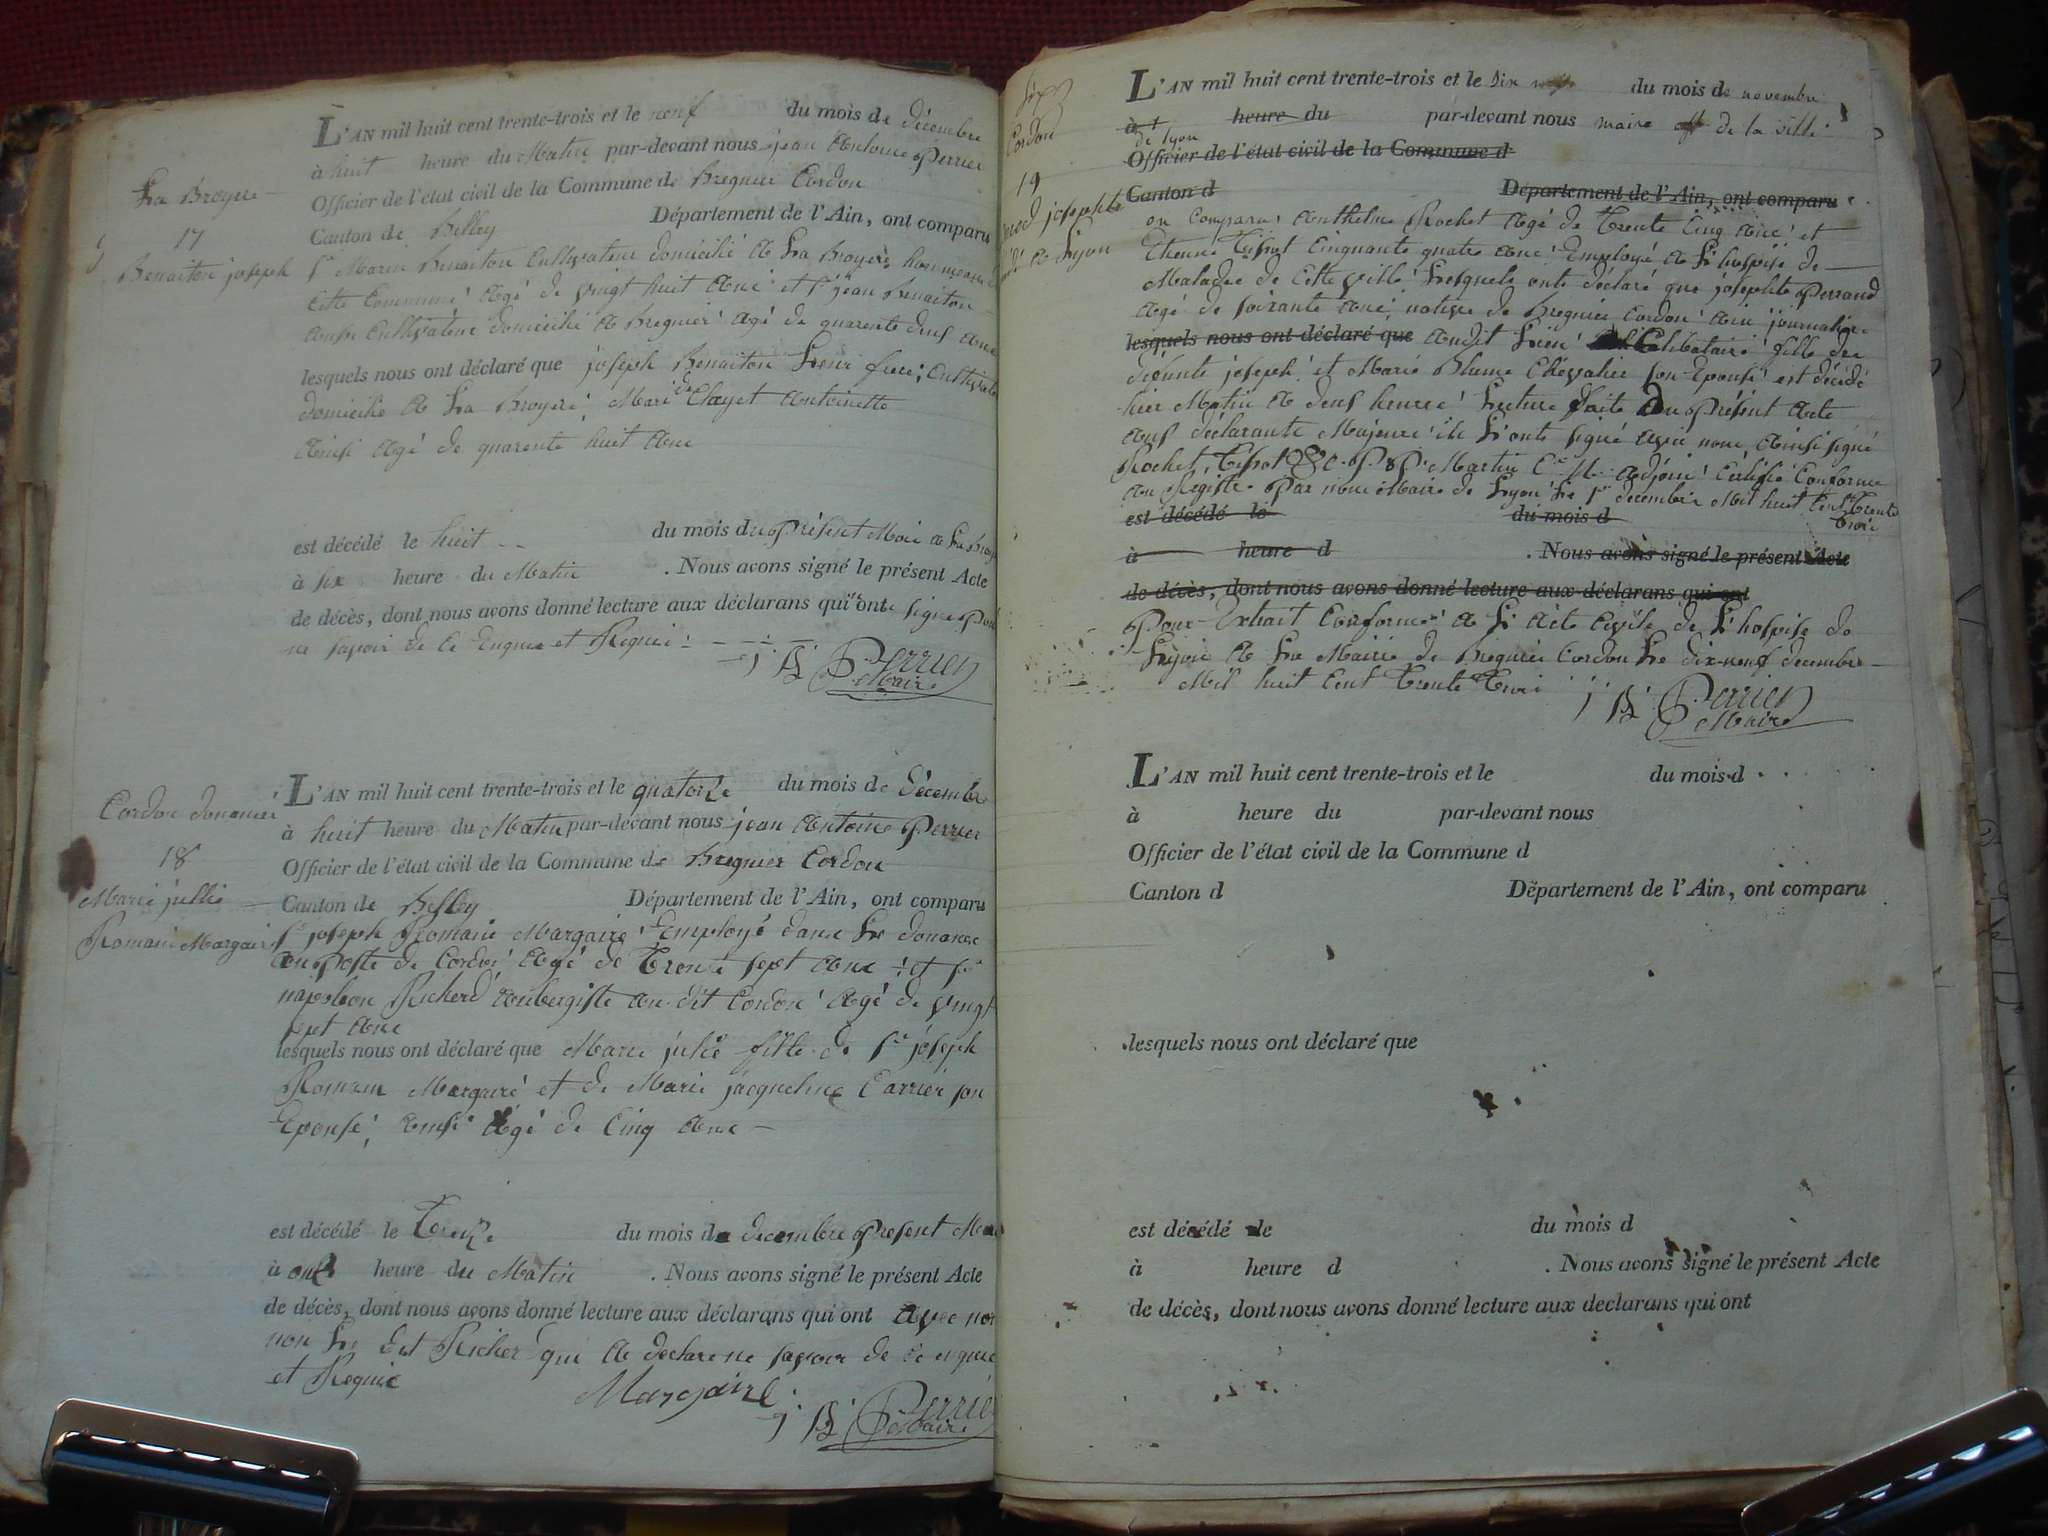 La Bruyere
17
Benaiton joseph
L'AN mil huit cent trente-trois et le neuf du mois de décembre
à huit heure du Matin par-devant nous jean Antoine Perrier
Officier de l'état civil de la Commune de Bregnier Cordon
Canton de Belley Département de l'Ain, ont comparu
Sr Marin Benaiton Cultivateur domicilié a La Bruyere
cette Commune agé de vingt huit ans et Sr jean Benaiton
aussi Cultivateur domicilié a Bregnier agé de quarente deux ans
lesquels nous ont déclaré que joseph Benaiton Leur frere, Cultivate
domicilié a La Bruyere, Mari de Clayet Antoinette
Ainsi agé de quarente huit ans
est décédé le huit du mois du Présent Mois a La Bruy
à six heure du Matin . Nous avons signé le présent Acte
de décès, dont nous avons donné lecture aux déclarans qui ont
ne savoir de ce Enquis et Requis
j B Perrier
Maire
Cordon douanier
18
Marie jullie
Romain Margair
L'AN mil huit cent trente-trois et le quatorze du mois de Décembre
à huit heure du Matin par-devant nous jean Antoine Perrier
Officier de l'état civil de la Commune de Bregnier Cordon
Canton de Belley Département de l'Ain, ont comparu
Sr joseph Romain Margaire Employé dans Les douanes
au Poste de Cordon agé de Trente sept ans et Sr
napoleon Richerd aubergiste au dit Cordon agé de vingt
sept ans
lesquels nous ont déclaré que Marie julie fille de Sr joseph
Romain Margaire et de Marie jacqueline Carrier son
Epouse, agé de Cinq ans
est décédé le Treize du mois de decembre Present Mois
à onze heure du Matin . Nous avons signé le présent Acte
de décès, dont nous avons donné lecture aux déclarans qui ont avec nous
non Le dit Richer qui a declare ne savoir de ce enquis
et Requis
Margaire
j B Perrier
Maire
Cordon
19
josephte
a Lyon
L'AN mil huit cent trente-trois et le Dix du mois de novembre
à heure du par-devant nous maire de la ville
de lyon
Officier de l'état civil de la Commune d
Canton d Département de l'Ain, ont comparu
on Comparu Anthelme Rochet agé de Trente Cinq ans et
Etienne Tissot Cinquante quatre ans Employé a L'hospise de
Malades de Cette ville Lesquels onts déclaré que josephte Perraud
agé de soixante ans, native de Bregnier Cordon journaliere
lesquels nous ont déclaré que audit Lieu Celibataire fille de
défunts joseph et Marie Blume Chevalier son Epouse est décédé
hier Matin a deux heures Lecture faite du Présent Acte
aux declarants Majeurs ils L'onts signé avec nous Ainsi signé
Rochet, Tissot P. Martin adjoint Certifié Conforme
au Registre Par nous Maire de Lyon Le 1er decembre Mil huit Cent Trente
Trois
est décédé le du mois d
à heure d . Nous avons signé le présent Acte
de décès, dont nous avons donné lecture aux déclarans qui ont
Pour Extrait Conforme a L'Acte Civile de L'hospise de
Lyon a La Mairie de Bregnier Cordon Le dix-neuf decembre
Mil huit Cent Trente Trois
j B Perrier
Maire
L'AN mil huit cent trente-trois et le du mois d
à heure du par-devant nous
Officier de l'état civil de la Commune d
Canton d Département de l'Ain, ont comparu
lesquels nous ont déclaré que
est décédé le du mois d
à heure d . Nous avons signé le présent Acte
de décès, dont nous avons donné lecture aux declarans qui ont